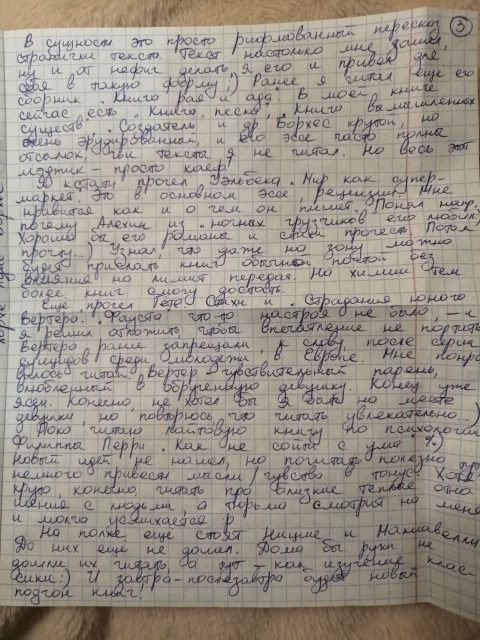 3
В сущности это просто рифмованный пересказ
странички текста. Текст настолько мне зашел,
ну и от нефиг делать я его и привел для
себя в такую форму :) Ранее я читал еще его
сборник "Книга рая и ада". В моей книге
сейчас есть "Книга песка", "Книга вымышленных
существ", "Создатель" и др. Борхес крутой, но
очень эрудированный, и его эссе часто полны
отсылок, чьи тексты я не читал. Но весь этот
мэджик – просто каеф!
Я кстати прочел Уэльбека "Мир как супер-
маркет". Это в основном эссе, рецензии. Мне
нравится как и о чем он пишет. Понял напр.
почему Алехин из "ночных грузчиков" его любил)
Хорошо бы его романы и стихи прочесть. Потом
прочту...) Узнал, что даже на зону можно
будет присылать книги обычной почтой без
влияния на лимит передач. На химии тем
более книг смогу достать.
Еще прочел Гете "Стихи" и "Страдания юного
Вертера". "Фауста" что-то настроя не было, – и
я решил отложить чтобы впечатление не портить.
Вертера ранее запрещали, к слову, после серии
суицидов среди молодежи в Европе. Мне понра-
вилось читать. Вертер – чувствительный парень,
влюбленный в обрученную девушку. Конец уже
ясен. Конечно, не хотел бы я быть на месте
девушки, но повторюсь, что читать увлекательно...)
Пока читаю лайтовую книгу по психологии
Филиппы Перри "Как не сойти с ума".
Новых идей не нашел, но почитать полезно
немного привести мысли/чувства в тонус. Хотя
круто, конечно, читать про близкие теплые отно-
шения с людьми, а тюрьма смотрит на меня
и молча усмехается :p
На полке еще стоят Ницше и Макиавелли
До них еще не дошел. Дома бы руки не
дошли их читать, а тут – как изучение клас-
сики :) И завтра-послезавтра будет новый
подгон книг!